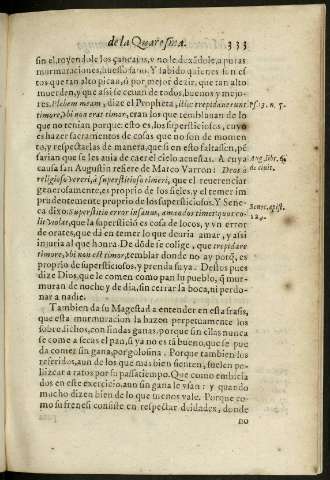 de la Quaresma. 333
sin el, royendole los çancajos, y no le dexãdole, a puras
murmuraciones, huesso sano. Y sabido quienes son es
tos que tan alto pican, ó por mejor dezir, que tan alto
muerden, y que assi se ceuan de todos, buenos y mejo-
res. Plebem meam, dize el Propheta, illic trepidauerunt
timore, vbi non erat timor, eran los que temblauan de lo
que no tenian porque: esto es, los supersticiosos, cuyo
es hazer sacramentos de cosas que no son de momen
to, y respectarlas de manera, que si en esto faltassen, pẽ
sarian que se les auia de caer el cielo acuestas. A cuya
causa san Augustin refiere de Marco Varron: Deos a
religioso vereri, à superstitioso timeri, que el reuerenciar
generosamente, es proprio de los fieles, y el temer im
prudentemente proprio de los supersticiosos. Y Sene-
ca dixo: superstitio error insanus, amandos timet quos co-
lit violat, que la supersticiõ es cosa de locos, y vn error
de orates, que dà en temer lo que deuria amar, y assi
injuria al que honra. De dõde se colige, que trepidare
timore, vbi non est timor, temblar donde no ay porq̃, es
proprio de supersticiosos, y prenda suya. Destos pues
dize Dios, que le comen como pan su pueblo, q̃ mur-
muran de noche y de dia, sin cerrar la boca, ni perdo-
nar a nadie.
Tambien da su Magestad a entender en esta frasis,
que esta murmuracion la hazen perpetuamente los
sobredichos, con sindas ganas, porque sin ellas nunca
se come a secas el pan, si ya no es tã bueno, que se pue
da comer sin gana, por golosina. Porque tambien los
referidos, aun de los que mas bien sienten, suelen po-
llizcar a ratos por su passatiempo. Que como embicia
dos en este exercicio, aun sin gana le vsan: y quando
mucho dizen bien de lo que menos vale. Porque co-
mo su frenesi consiste en respectar deidades, donde
no
Ps. 13. n. 5.
Aug. libr. 6.
de ciuit.
Senec. epist.
124.